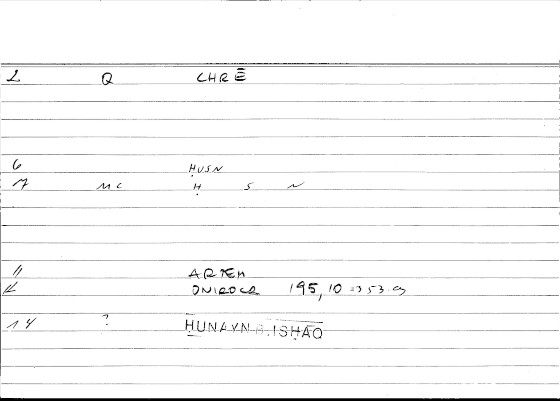 2 Q CHRĒ
6 ḤUSN
7 MC Ḥ S N
11 ARTEM
12 ONIROCR 195,10
14 ? ḤUNAYN B.ISḤĀQ